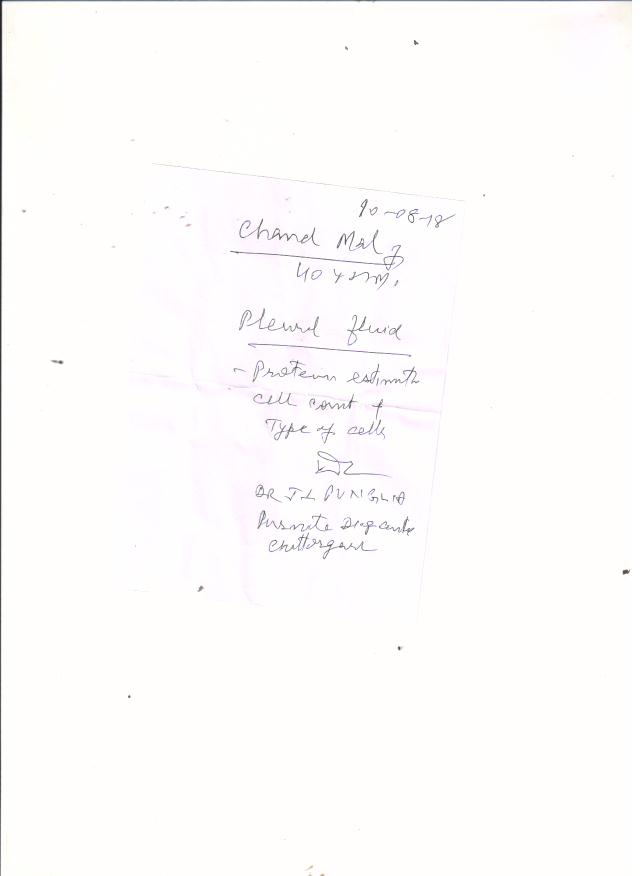 10-08-18
Chand Mal
40 yrs M.
Pleural fluid
- Protein estimatn
cell count &
Type of cells
DR J L PUNGLIA
Diag centre
Chittorgarh